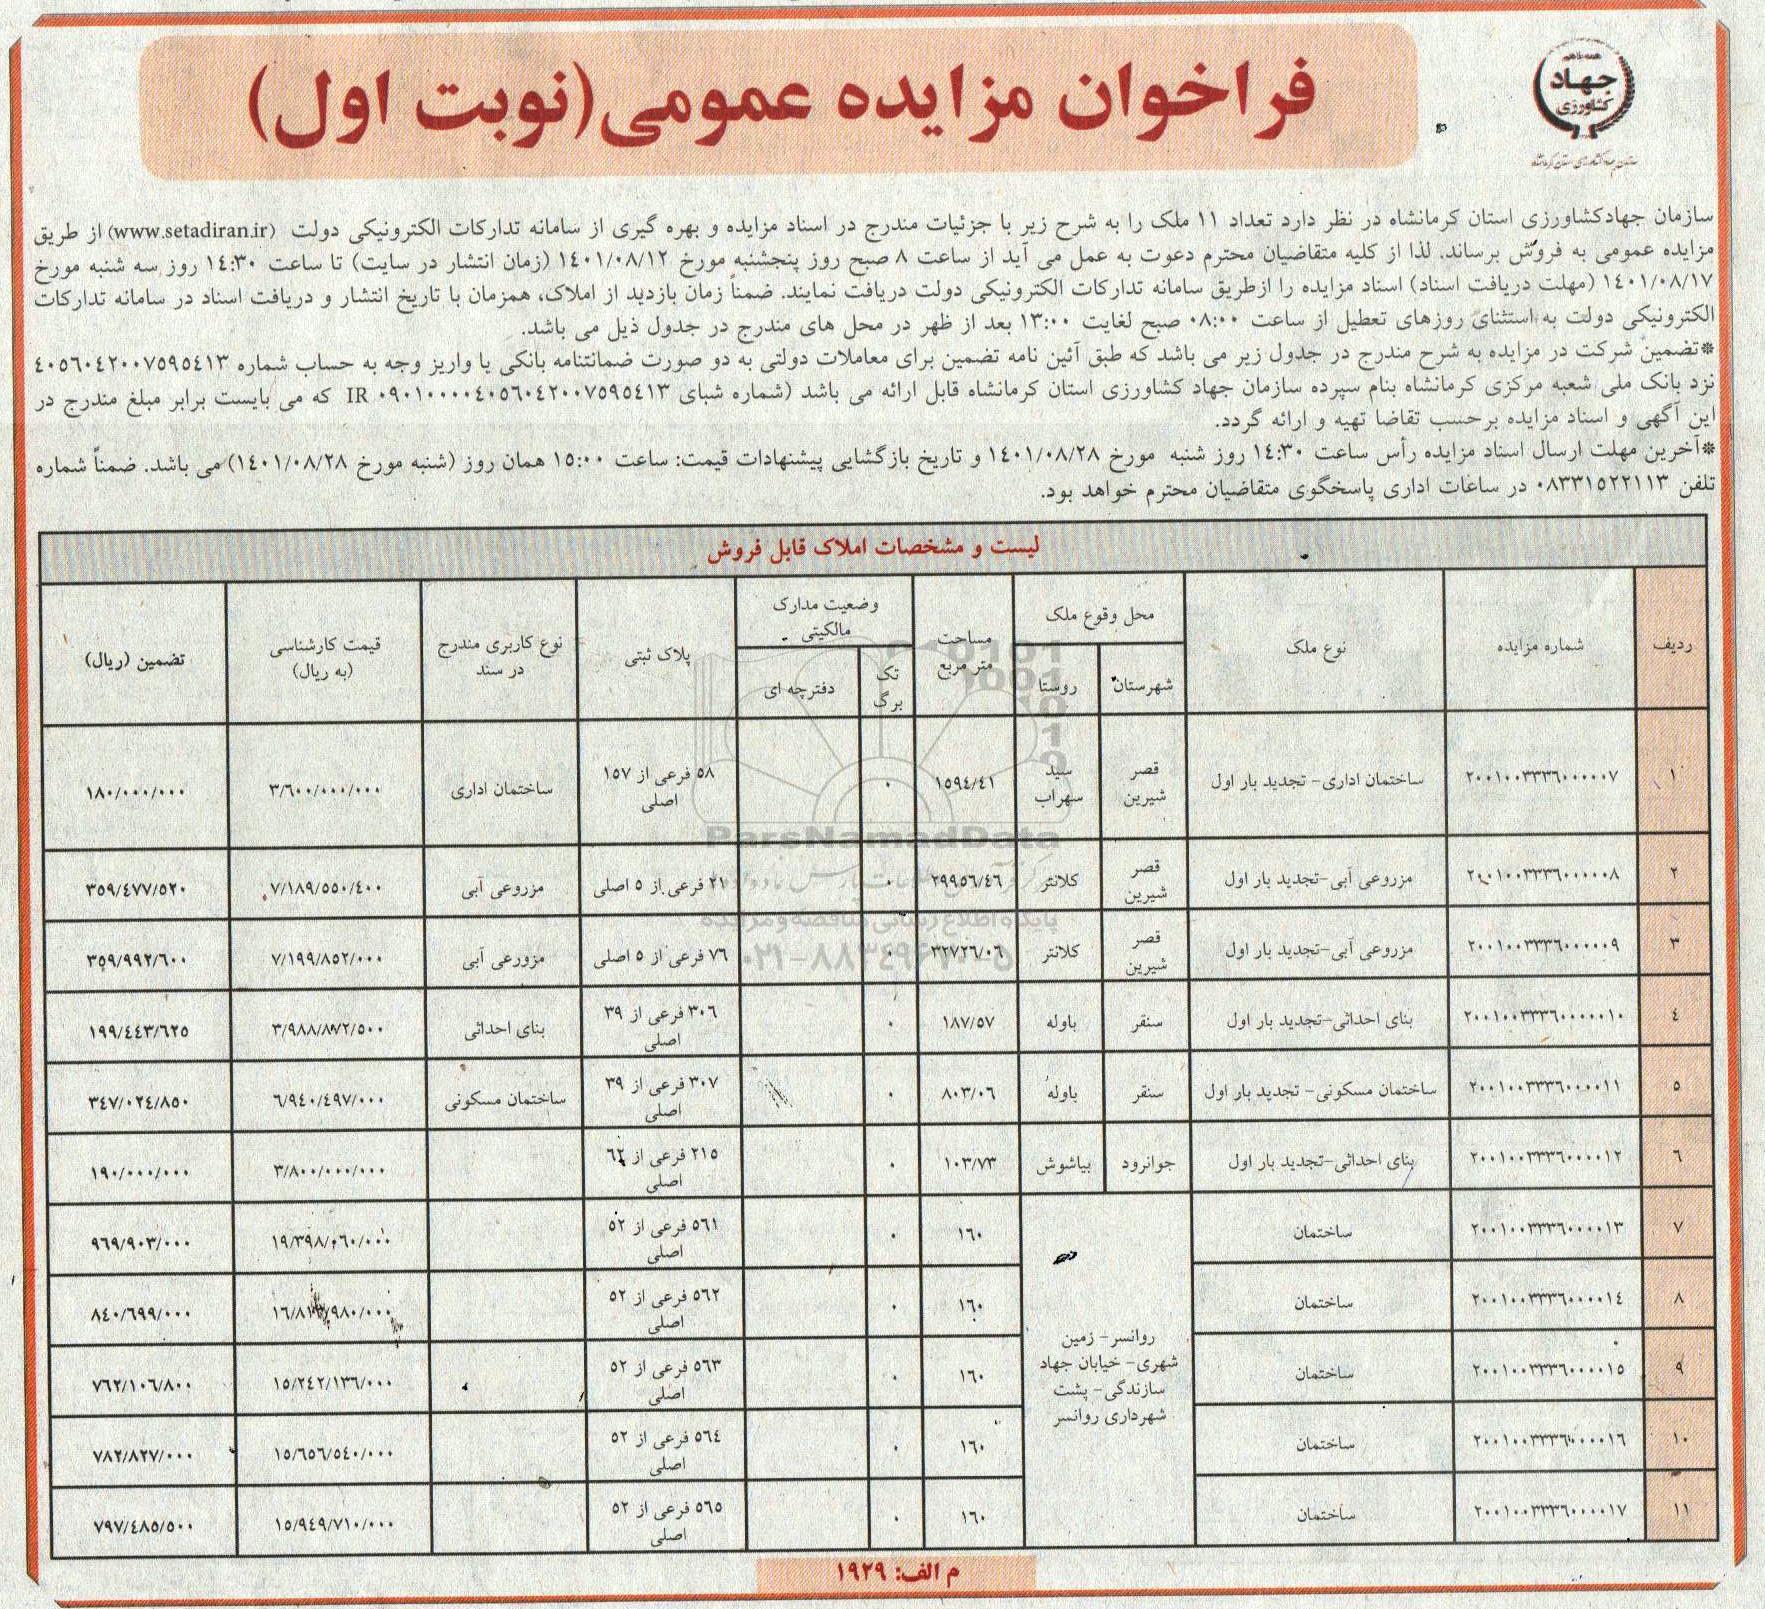 همه با هم
جهاد
کشاورزی
سازمان جهاد کشاورزی استان کرمانشاه
فراخوان مزایده عمومی (نوبت اول)
سازمان جهادکشاورزی استان کرمانشاه در نظر دارد تعداد ۱۱ ملک را به شرح زیر با جزئیات مندرج در اسناد مزایده و بهره گیری از سامانه تدارکات الکترونیکی دولت (www.setadiran.ir) از طریق
مزایده عمومی به فروش برساند. لذا از کلیه متقاضیان محترم دعوت به عمل می آید از ساعت ۸ صبح روز پنجشنبه مورخ ۱۴۰۱/۰۸/۱۲ (زمان انتشار در سایت) تا ساعت ۱۴:۳۰ روز سه شنبه مورخ
۱۴۰۱/۰۸/۱۷ (مهلت دریافت اسناد) اسناد مزایده را ازطریق سامانه تدارکات الکترونیکی دولت دریافت نمایند. ضمناً زمان بازدید از املاک، همزمان با تاریخ انتشار و دریافت اسناد در سامانه تدارکات
الکترونیکی دولت به استثنای روزهای تعطیل از ساعت ۰۸:۰۰ صبح لغایت ۱۳:۰۰ بعد از ظهر در محل های مندرج در جدول ذیل می باشد.
*تضمین شرکت در مزایده به شرح مندرج در جدول زیر می باشد که طبق آئین نامه تضمین برای معاملات دولتی به دو صورت ضمانتنامه بانکی یا واریز وجه به حساب شماره ۴۰۵۶۰۴۲۰۰۷۵۹۵۴۱۳
نزد بانک ملی شعبه مرکزی کرمانشاه بنام سپرده سازمان جهاد کشاورزی استان کرمانشاه قابل ارائه می باشد (شماره شبای IR ۰۹۰۱۰۰۰۰۴۰۵۶۰۴۲۰۰۷۵۹۵۴۱۳ که می بایست برابر مبلغ مندرج در
این آگهی و اسناد مزایده برحسب تقاضا تهیه و ارائه گردد.
*آخرین مهلت ارسال اسناد مزایده رأس ساعت ۱۴:۳۰ روز شنبه مورخ ۱۴۰۱/۰۸/۲۸ و تاریخ بازگشایی پیشنهادات قیمت: ساعت ۱۵:۰۰ همان روز (شنبه مورخ ۱۴۰۱/۰۸/۲۸) می باشد. ضمناً شماره
تلفن ۰۸۳۳۱۵۲۲۱۱۳ در ساعات اداری پاسخگوی متقاضیان محترم خواهد بود.
لیست و مشخصات املاک قابل فروش
ردیف شماره مزایده نوع ملک محل وقوع ملک مساحت متر مربع وضعیت مدارک مالکیتی پلاک ثبتی نوع کاربری مندرج در سند قیمت کارشناسی (به ریال) تضمین (ریال)
شهرستان روستا تک برگ دفترچه ای
۱ ۲۰۰۱۰۰۳۳۳۶۰۰۰۰۰۷ ساختمان اداری- تجدید بار اول قصر شیرین سید سهراب ۱۵۹۴/۴۱ ۰ ۵۸ فرعی از ۱۵۷ اصلی ساختمان اداری ۳/۶۰۰/۰۰۰/۰۰۰ ۱۸۰/۰۰۰/۰۰۰
۲ ۲۰۰۱۰۰۳۳۳۶۰۰۰۰۰۸ مزروعی آبی-تجدید بار اول قصر شیرین کلانتر ۲۹۹۵۶/۴۶ ۰ ۲۱ فرعی از ۵ اصلی مزروعی آبی ۷/۱۸۹/۵۵۰/۴۰۰ ۳۵۹/۴۷۷/۵۲۰
۳ ۲۰۰۱۰۰۳۳۳۶۰۰۰۰۰۹ مزروعی آبی-تجدید بار اول قصر شیرین کلانتر ۳۲۷۲۶/۰۶ ۰ ۷۶ فرعی از ۵ اصلی مزورعی آبی ۷/۱۹۹/۸۵۲/۰۰۰ ۳۵۹/۹۹۲/۶۰۰
۴ ۲۰۰۱۰۰۳۳۳۶۰۰۰۰۱۰ بنای احداثی-تجدید بار اول سنقر باوله ۱۸۷/۵۷ ۰ ۳۰۶ فرعی از ۳۹ اصلی بنای احداثی ۳/۹۸۸/۸۷۲/۵۰۰ ۱۹۹/۴۴۳/۶۲۵
۵ ۲۰۰۱۰۰۳۳۳۶۰۰۰۰۱۱ ساختمان مسکونی- تجدید بار اول سنقر باوله ۸۰۳/۰۶ ۰ ۳۰۷ فرعی از ۳۹ اصلی ساختمان مسکونی ۶/۹۴۰/۴۹۷/۰۰۰ ۳۴۷/۰۲۴/۸۵۰
۶ ۲۰۰۱۰۰۳۳۳۶۰۰۰۰۱۲ بنای احداثی-تجدید بار اول جوانرود بیاشوش ۱۰۳/۷۳ ۰ ۲۱۵ فرعی از ۶۲ اصلی ۳/۸۰۰/۰۰۰/۰۰۰ ۱۹۰/۰۰۰/۰۰۰
روانسر- زمین شهری- خیابان جهاد سازندگی- پشت شهرداری روانسر
۷ ۲۰۰۱۰۰۳۳۳۶۰۰۰۰۱۳ ساختمان ۱۶۰ ۰ ۵۶۱ فرعی از ۵۲ اصلی ۱۹/۳۹۸/۰۶۰/۰۰۰ ۹۶۹/۹۰۳/۰۰۰
۸ ۲۰۰۱۰۰۳۳۳۶۰۰۰۰۱۴ ساختمان ۱۶۰ ۰ ۵۶۲ فرعی از ۵۲ اصلی ۸۴۰/۶۹۹/۰۰۰
۹ ۲۰۰۱۰۰۳۳۳۶۰۰۰۰۱۵ ساختمان ۱۶۰ ۰ ۵۶۳ فرعی از ۵۲ اصلی ۱۵/۲۴۲/۱۳۶/۰۰۰ ۷۶۲/۱۰۶/۸۰۰
۱۰ ۲۰۰۱۰۰۳۳۳۶۰۰۰۰۱۶ ساختمان ۱۶۰ ۰ ۵۶۴ فرعی از ۵۲ اصلی ۱۵/۶۵۶/۵۴۰/۰۰۰ ۷۸۲/۸۲۷/۰۰۰
۱۱ ۲۰۰۱۰۰۳۳۳۶۰۰۰۰۱۷ ساختمان ۱۶۰ ۰ ۵۶۵ فرعی از ۵۲ اصلی ۱۵/۹۴۹/۷۱۰/۰۰۰ ۷۹۷/۴۸۵/۵۰۰
ParsNamadData
پایگاه اطلاع رسانی مناقصه و مزایده
۰۲۱-۸۸۳۴۹۶۷۰-۵
م الف: ۱۹۲۹